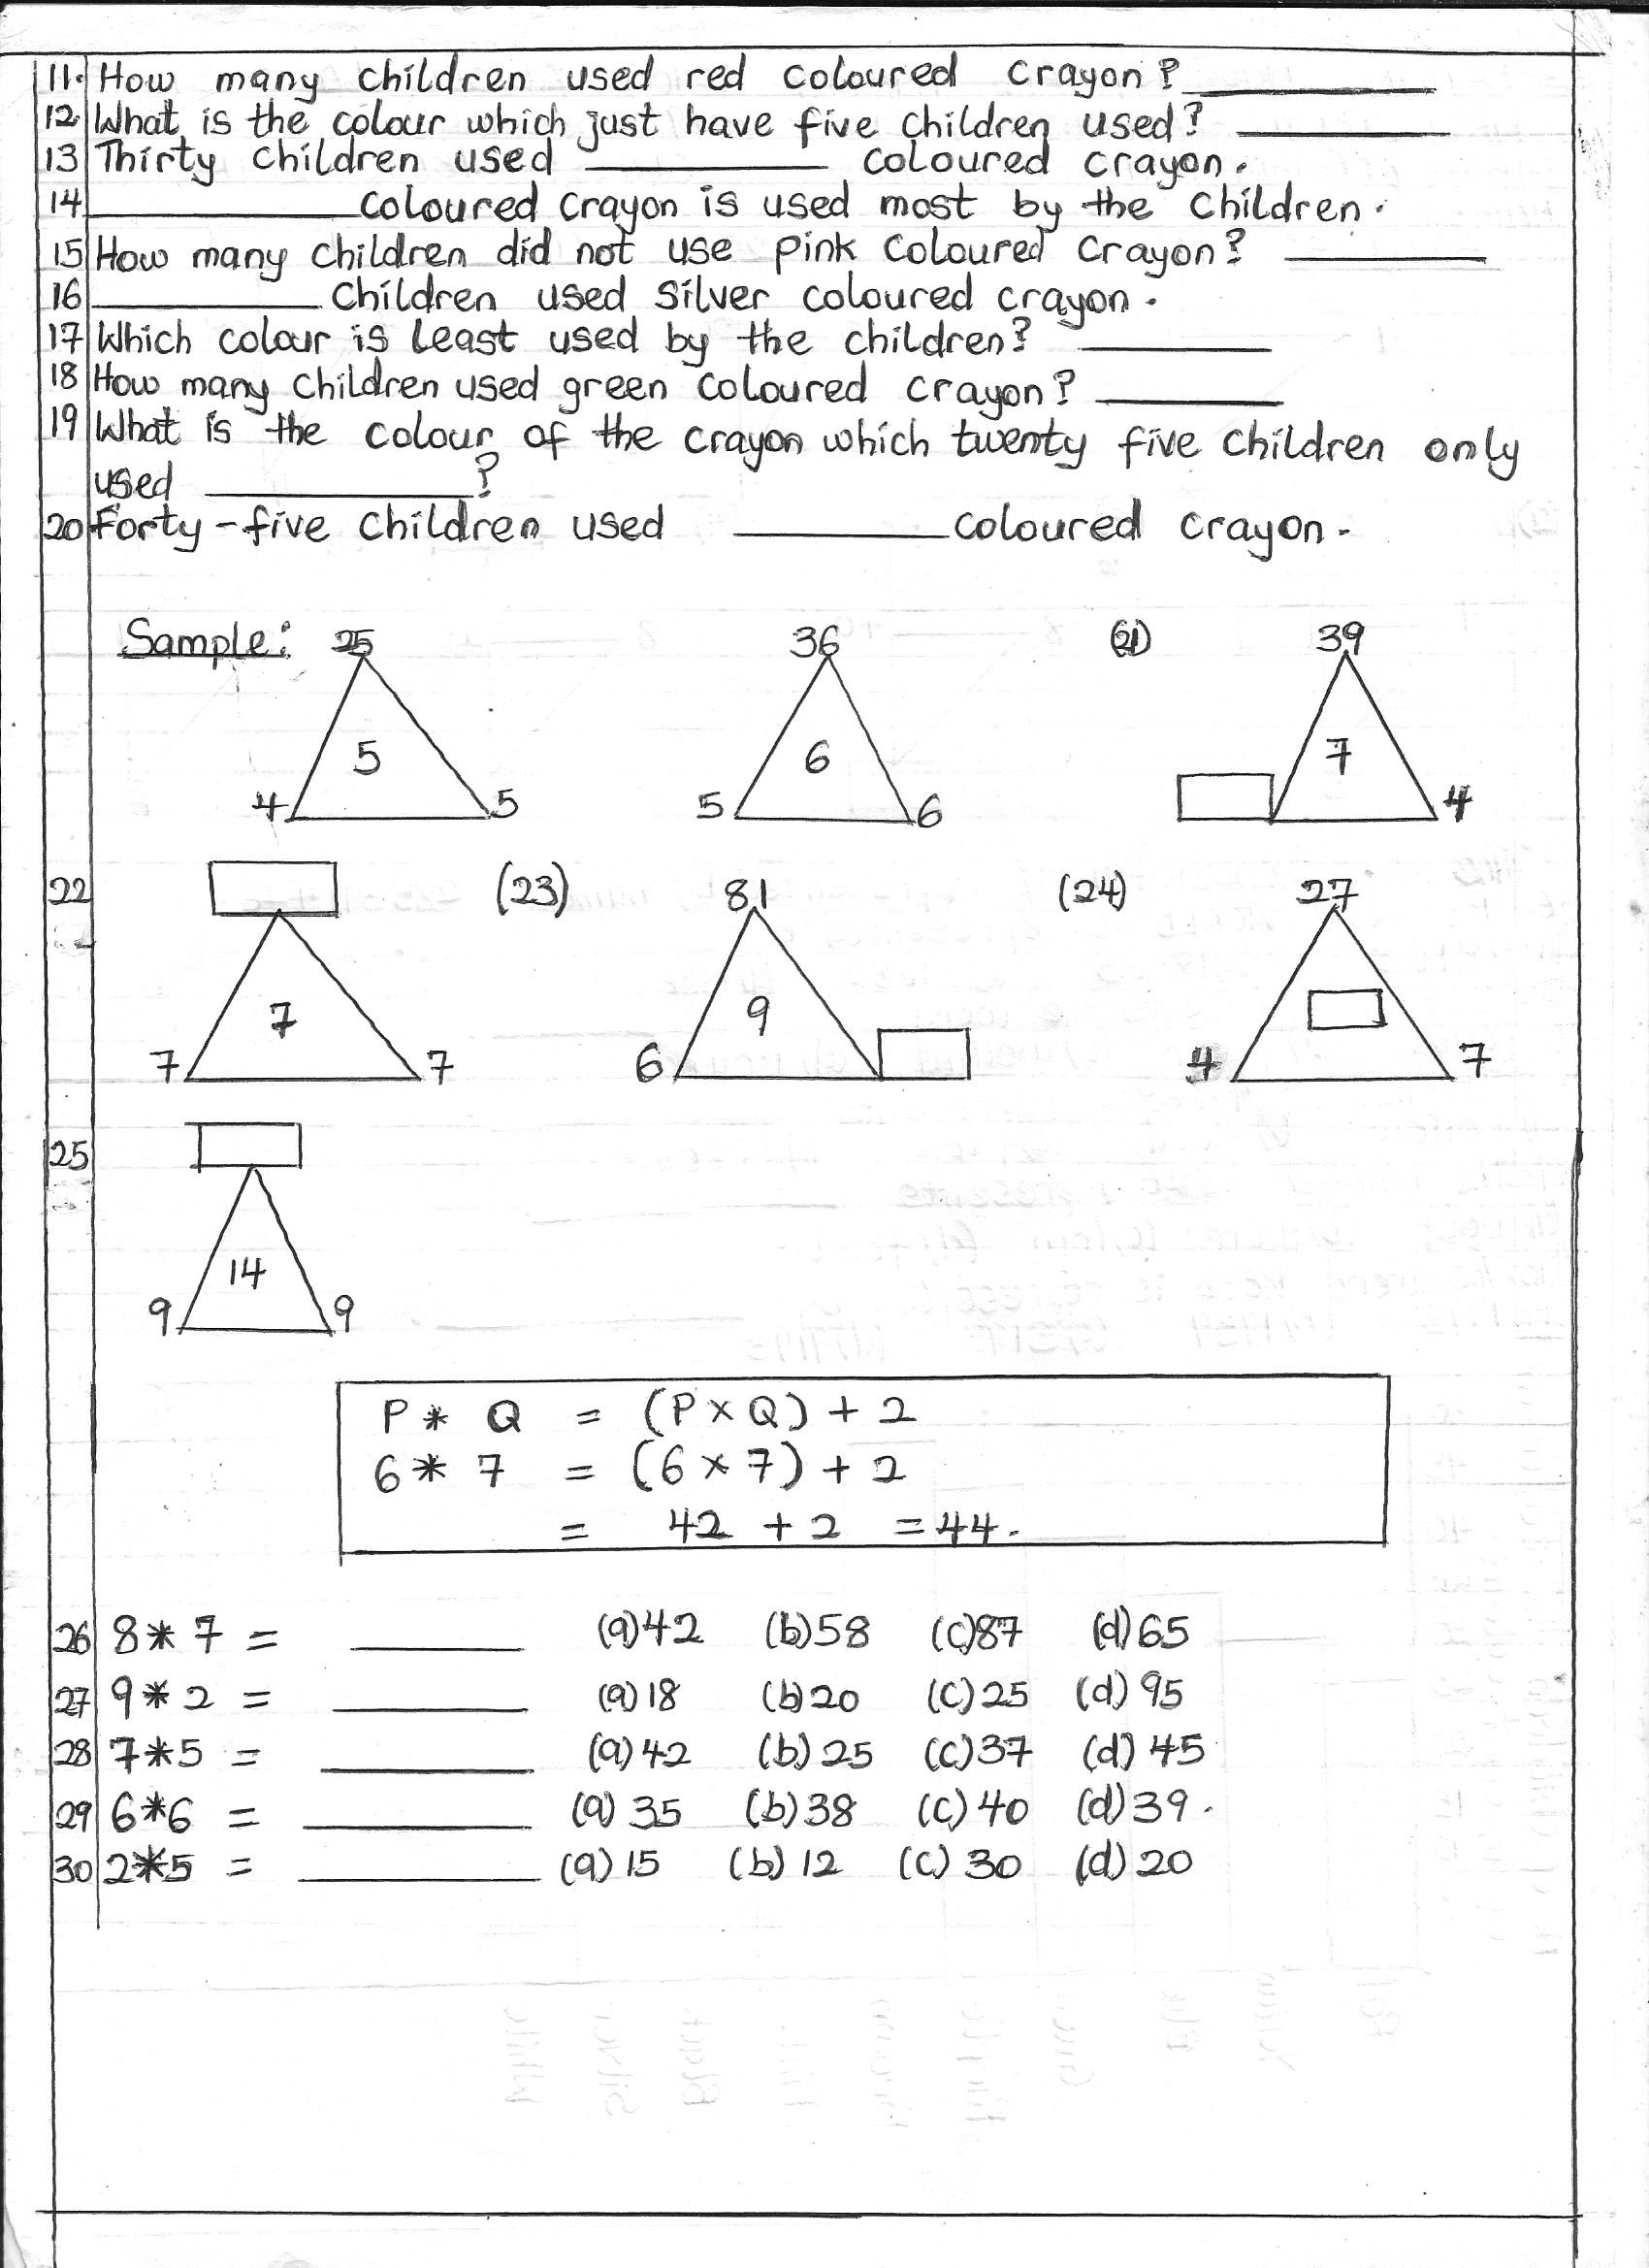 11. How many children used red coloured crayon? ________
12 What is the colour which just have five children used? ________
13 Thirty children used ________ coloured crayon.
14 ________ coloured crayon is used most by the children.
15 How many children did not use pink coloured crayon? ________
16 ________ children used silver coloured crayon.
17 Which colour is least used by the children? ________
18 How many children used green coloured crayon? ________
19 What is the colour of the crayon which twenty five children only
used ________?
20 Forty-five children used ________ coloured crayon.
Sample: 25 36 (21) 39
5 6 7
4 5 5 6 4
22 (23) 81 (24) 27
7 9
7 7 6 4 7
25
14
9 9
P * Q = (P x Q) + 2
6 * 7 = (6 x 7) + 2
= 42 + 2 = 44.
26 8 * 7 = ________ (a) 42 (b) 58 (c) 87 (d) 65
27 9 * 2 = ________ (a) 18 (b) 20 (c) 25 (d) 95
28 7 * 5 = ________ (a) 42 (b) 25 (c) 37 (d) 45
29 6 * 6 = ________ (a) 35 (b) 38 (c) 40 (d) 39.
30 2 * 5 = ________ (a) 15 (b) 12 (c) 30 (d) 20